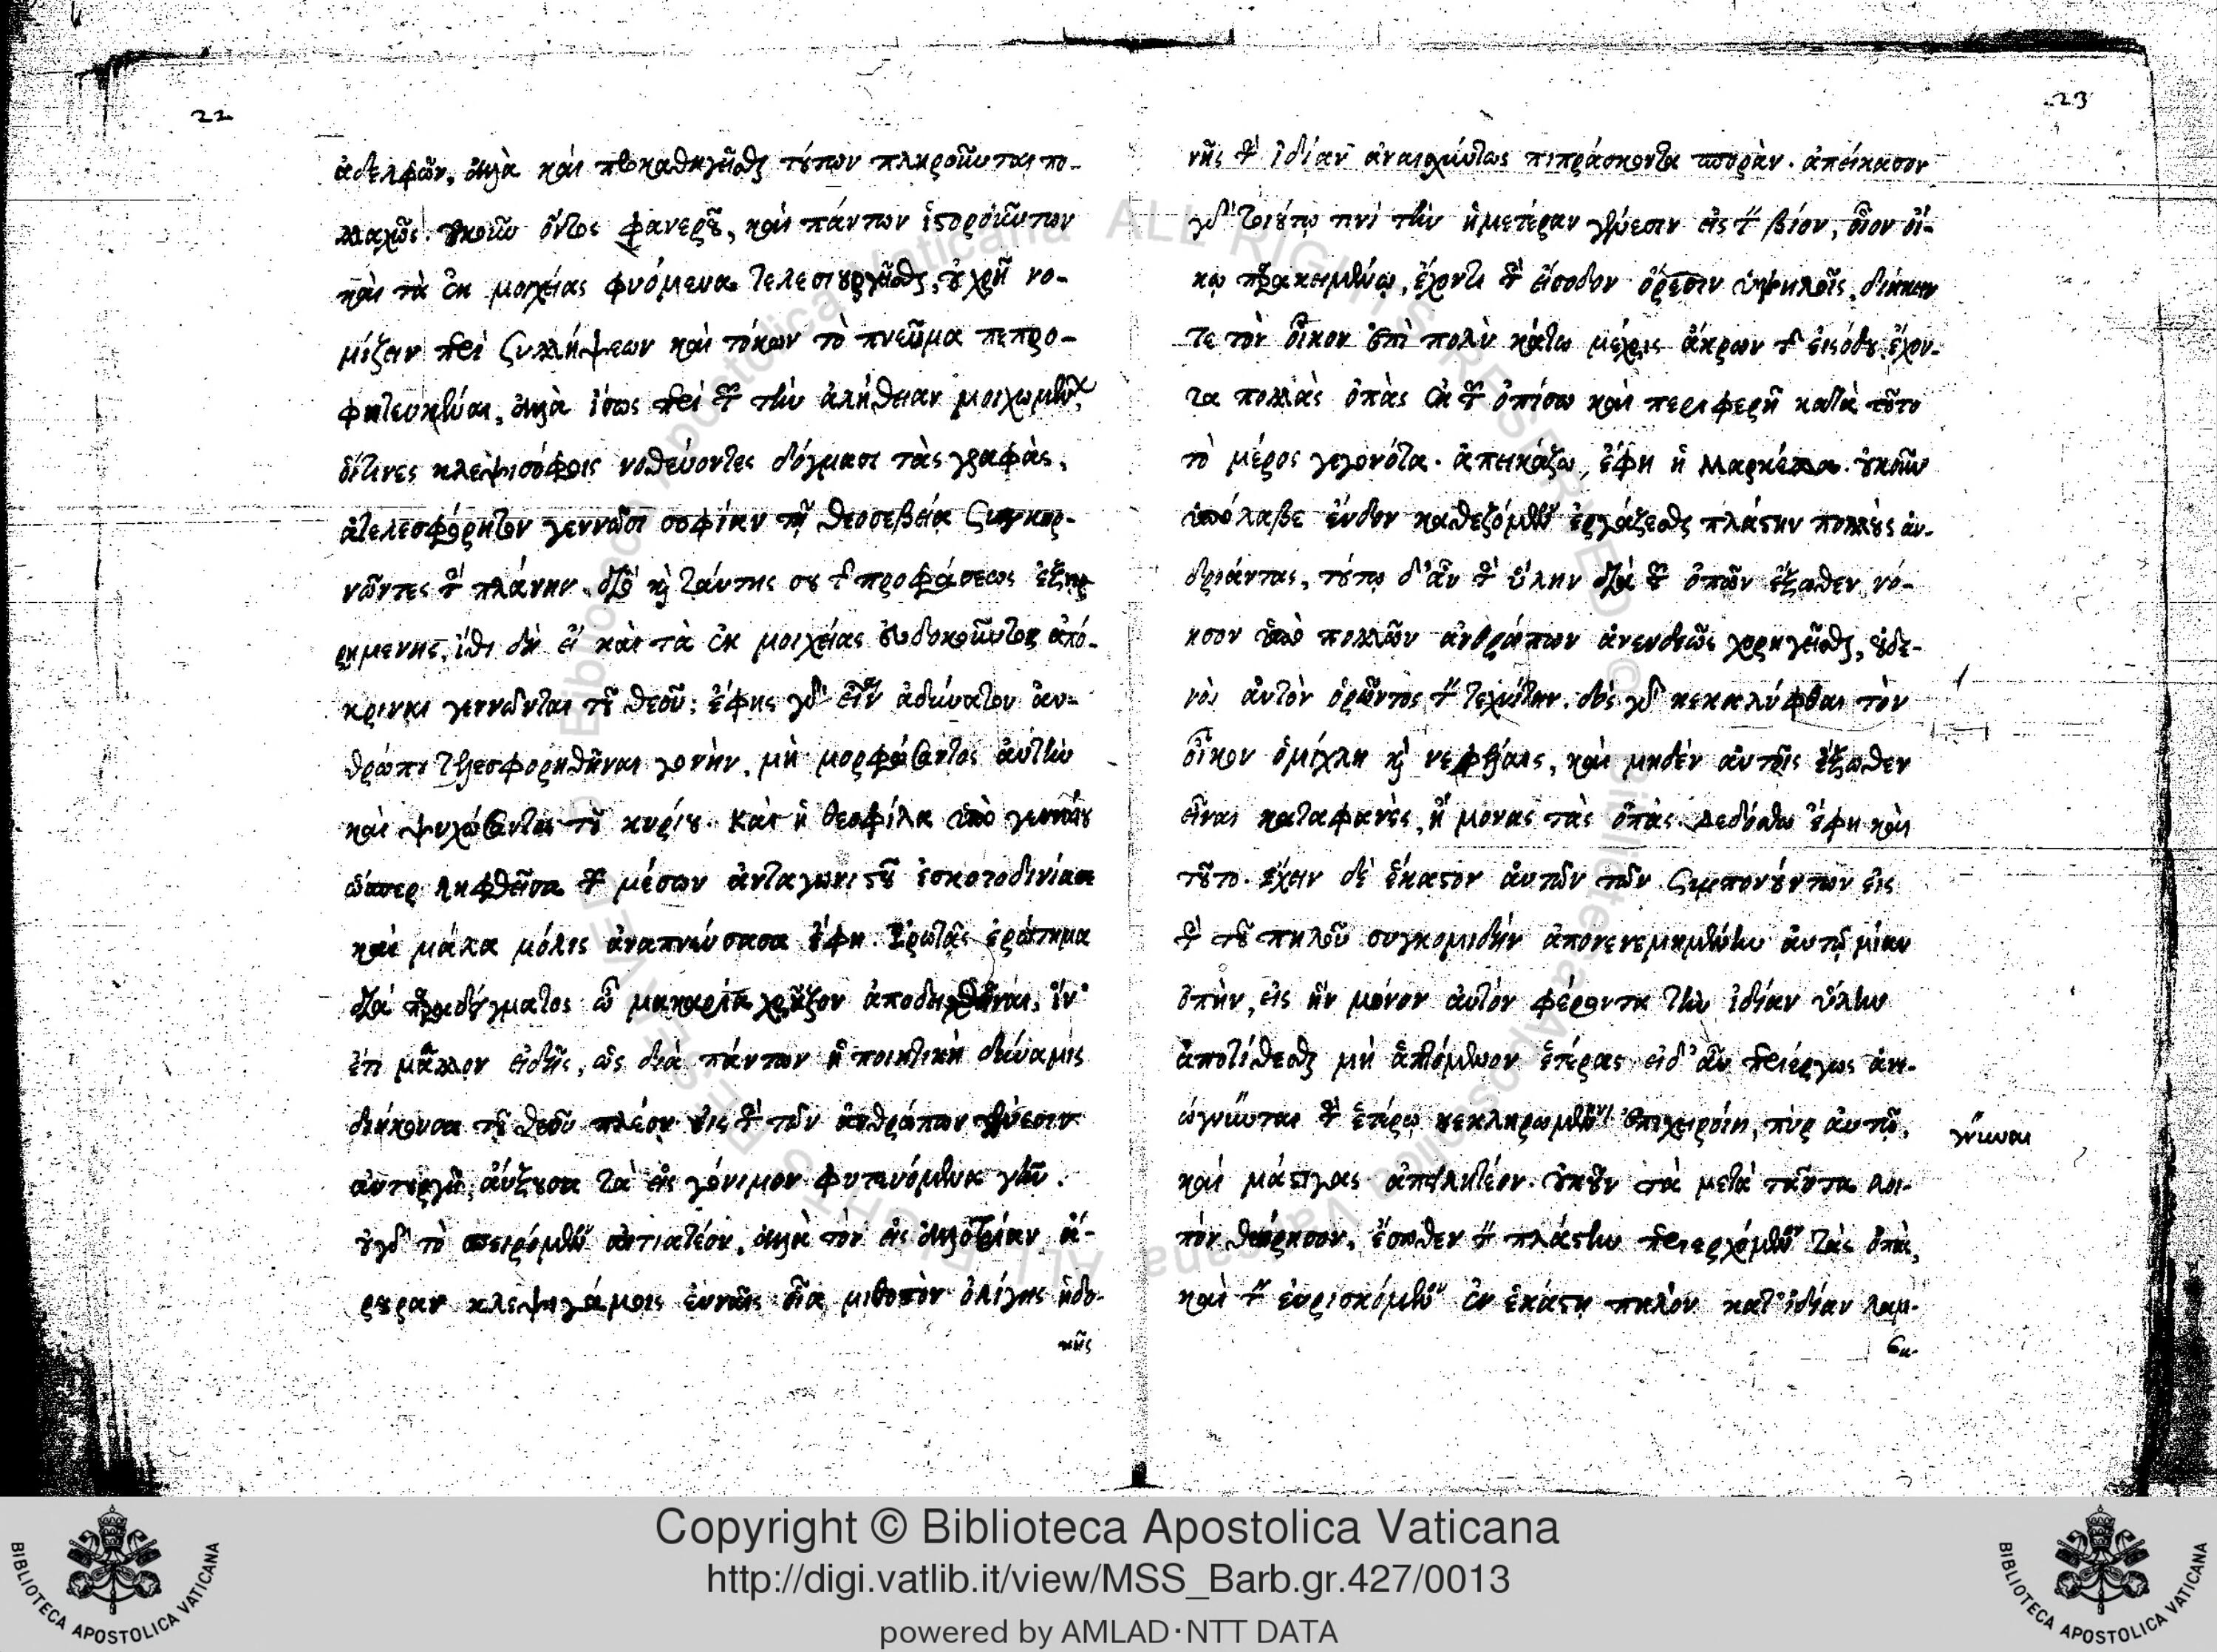 22
ἀδελφῶν, ἀλλὰ καὶ προκαθηγεῖσθαι τούτων πληροῦνται πο-
λλαχῶς. οὐκοῦν ὄντος φανεροῦ, καὶ πάντων ἱστορούντων
καὶ τὰ ἐκ μοιχείας φυόμενα τελεσιουργεῖσθαι, οὐ χρὴ νο-
μίζειν περὶ συλλήψεων καὶ τόκων τὸ πνεῦμα πεπρο-
φητευκέναι, ἀλλὰ ἴσως περὶ τῶν τὴν ἀλήθειαν μοιχωμένων,
οἵτινες κλεψισόφοις νοθεύοντες δόγμασι τὰς γραφὰς,
ἀτελεσφόρητον γεννῶσι σοφίαν τῇ θεοσεβείᾳ συγκερ-
νῶντες τὴν πλάνην. διὸ καὶ ταύτης σου τῆς προφάσεως ἐξῃ-
ρημένης, ἴθι δὴ εἰ καὶ τὰ ἐκ μοιχείας εὐδοκοῦντος ἀπό-
κριναι γεννῶνται τοῦ θεοῦ; ἔφης γὰρ εἶναι ἀδύνατον ἀν-
θρώπου τελεσφορηθῆναι γονὴν, μὴ μορφώσαντος αὐτὴν
καὶ ψυχώσαντος τοῦ κυρίου. καὶ ἡ θεοφίλα ὑπὸ γενναίου
ὥσπερ ληφθεῖσα τῶν μέσων ἀνταγωνιστοῦ ἐσκοτοδινίασε
καὶ μάλα μόλις ἀναπνεύσασα ἔφη. Ἐρωτᾷς ἐρώτημα
διὰ παραδείγματος ὦ μακαρία χρῇζον ἀποδειχθῆναι, ἵν'
ἔτι μᾶλλον εἰδῇς, ὡς διὰ πάντων ἡ ποιητικὴ δύναμις
διήκουσα τοῦ θεοῦ πλέον εἰς τὴν τῶν ἀνθρώπων γένεσιν
αὐτουργεῖ, αὔξουσα τὰ εἰς γόνιμον φυτευόμενα γῆν.
οὐ γὰρ τὸ σπειρόμενον αἰτιατέον, ἀλλὰ τὸν εἰς ἀλλοτρίαν ἄ-
ρουραν κλεψιγάμοις εὐναῖς διὰ μισθοπὸν ὀλίγης ἡδο-
νῆς
23
νῆς τὴν ἰδίαν ἀναισχύντως πιπράσκοντα σπορὰν. ἀπείκασον
γὰρ τοιούτῳ τινὶ τὴν ἡμετέραν γένεσιν εἰς τὸν βίον, οἷον οἴ-
κῳ παρακειμένῳ, ἔχοντι τὴν εἴσοδον ὄρεσιν ὑψηλοῖς, διήκειν
τε τὸν οἶκον ἐπὶ πολὺ κάτω μέχρις ἄκρων τῆς εἰσόδου, ἔχον-
τα πολλὰς ὀπὰς ἐκ τῶν ὀπίσω καὶ περιφερῆ κατὰ τοῦτο
τὸ μέρος γεγονότα. ἀπεικάζω, ἔφη ἡ Μαρκέλλα. οὐκοῦν
ὑπόλαβε ἔνδον καθεζόμενον ἐργάζεσθαι πλάστην πολλοὺς ἀν-
δριάντας, τούτῳ δ' αὖ τὴν ὕλην διὰ τῶν ὀπῶν ἔξωθεν νό-
ησον ὑπὸ πολλῶν ἀνθρώπων ἀνενδεῶς χορηγεῖσθαι, οὐδε-
νὸς αὐτὸν ὁρῶντος τὸν τεχνίτην. δὸς γὰρ κεκαλύφθαι τὸν
οἶκον ὁμίχλῃ καὶ νεφέλαις, καὶ μηδὲν αὐτοῖς ἔξωθεν
εἶναι καταφανὲς, ἢ μόνας τὰς ὀπάς. Δεδόσθω ἔφη καὶ
τοῦτο. ἔχειν δὲ ἕκαστον αὐτῶν τῶν συμπονούντων εἰς
τὴν τοῦ πηλοῦ συγκομιδὴν ἀπονενεμημένην αὐτῷ μίαν
ὀπὴν, εἰς ἣν μόνον αὐτὸν φέροντα τὴν ἰδίαν ὕλην
ἀποτίθεσθαι μὴ ἁπτόμενον ἑτέρας. εἰ δ' αὖ περιέργως ἀν-
ώγνυται τὴν ἑτέρῳ κεκληρωμένην ἐπιχειροίη, πῦρ αὐτῷ,
γνῦναι
καὶ μάστιγας ἀπειλητέον. οὐκοῦν τὰ μετὰ ταῦτα λοι-
πὸν θεώρησον, ἔσωθεν τὸν πλάστην περιερχόμενον τὰς ὀπὰς,
καὶ τὸν εὑρισκόμενον ἐν ἑκάστῃ πηλὸν κατ' ἰδίαν λαμ-
βά-
Copyright © Biblioteca Apostolica Vaticana
http://digi.vatlib.it/view/MSS_Barb.gr.427/0013
powered by AMLAD·NTT DATA
BIBLIOTECA APOSTOLICA VATICANA
BIBLIOTECA APOSTOLICA VATICANA